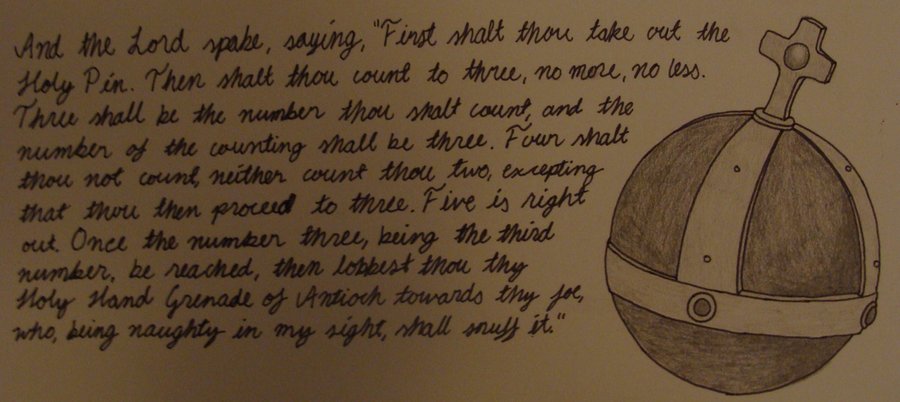 And the Lord spake, saying, "First shalt thou take out the
Holy Pin. Then shalt thou count to three, no more, no less.
Three shall be the number thou shalt count, and the
number of the counting shall be three. Four shalt
thou not count, neither count thou two, excepting
that thou then proceed to three. Five is right
out. Once the number three, being the third
number, be reached, then lobbest thou thy
Holy Hand Grenade of Antioch towards thy foe,
who, being naughty in my sight, shall snuff it."